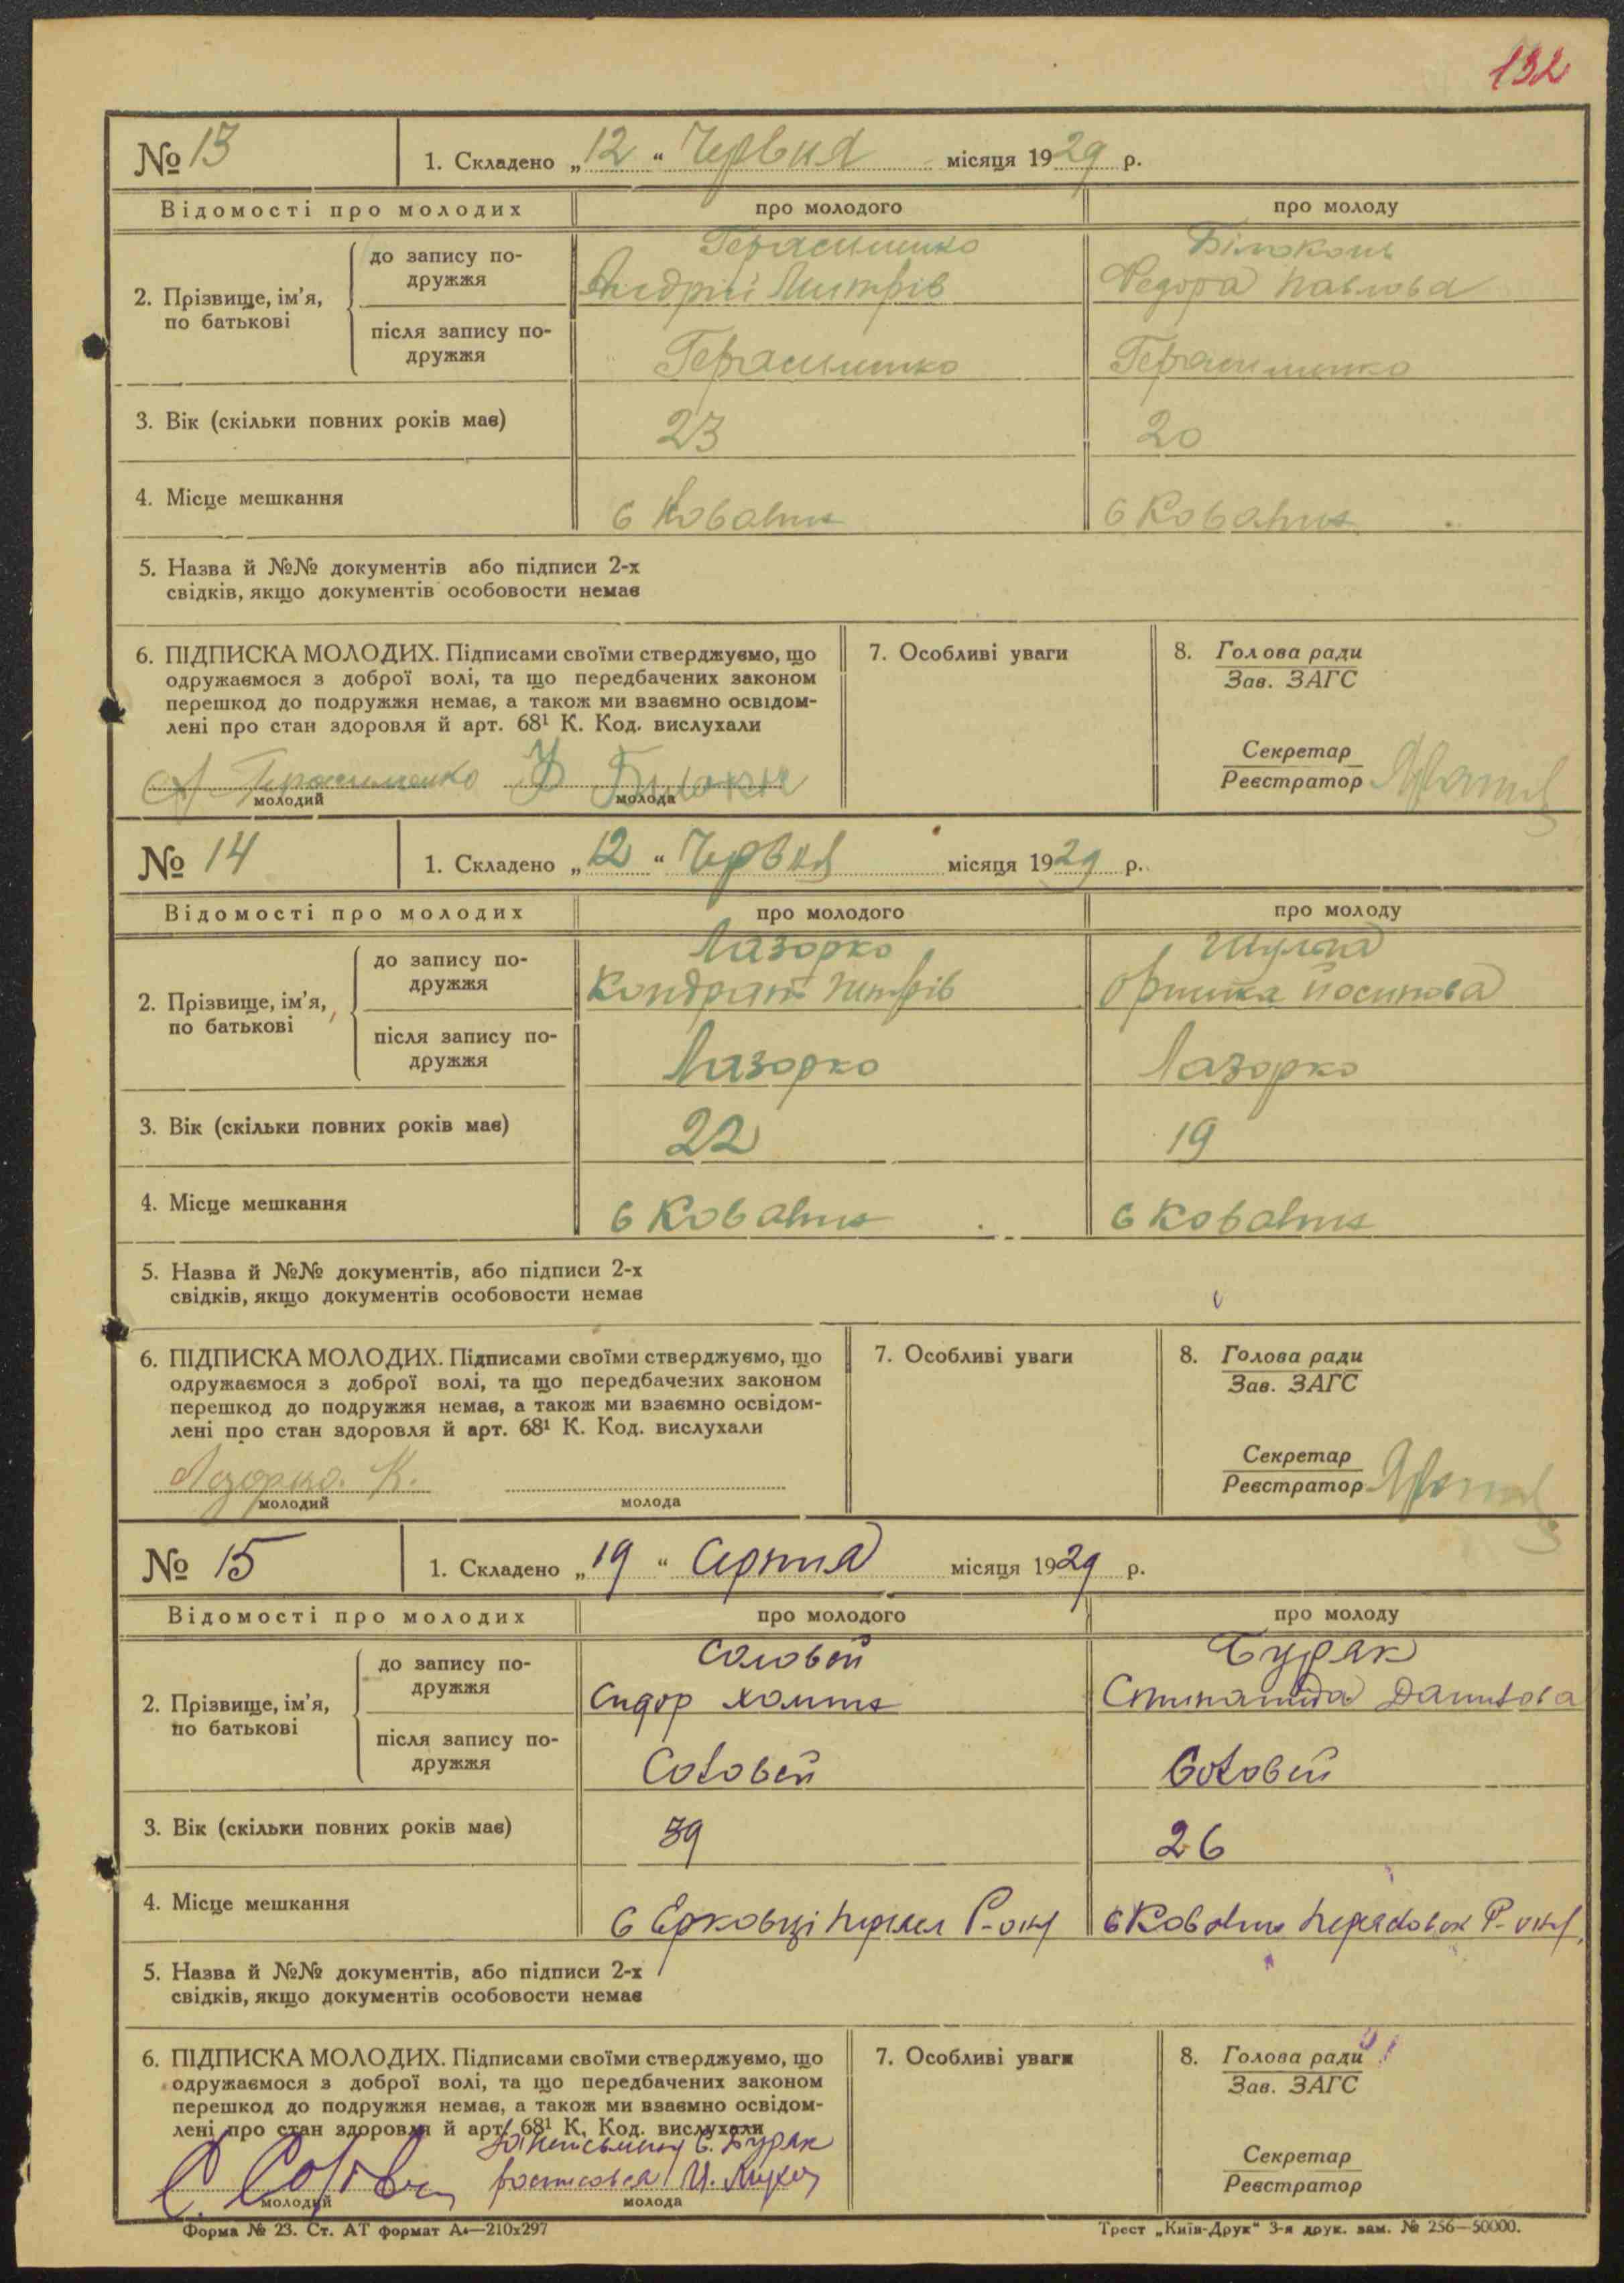 132
№ 13
1. Складено „12“ Червня місяця 1929 р.
Відомості про молодих
про молодого
про молоду
2. Прізвище, ім’я, по батькові
до запису подружжя
Герасименко
Андрій Митрів
Білоконь
Федора Павлова
після запису подружжя
Герасименко
Герасименко
3. Вік (скільки повних років має)
23
20
4. Місце мешкання
с Ковалин
с Ковалин
5. Назва й №№ документів або підписи 2-х
свідків, якщо документів особовости немає
6. ПІДПИСКА МОЛОДИХ. Підписами своїми стверджуємо, що
одружаємося з доброї волі, та що передбачених законом
перешкод до подружжя немає, а також ми взаємно освідом-
лені про стан здоровля й арт. 68¹ К. Код. вислухали
А Герасименко
молодий
молода
7. Особливі уваги
8. Голова ради
Зав. ЗАГС
Секретар
Реєстратор
№ 14
1. Складено „12“ Червня місяця 1929 р.
Відомості про молодих
про молодого
про молоду
2. Прізвище, ім’я, по батькові
до запису подружжя
Лазорко
Кондрат Петрів
Шульга
Оришка Йосипова
після запису подружжя
Лазорко
Лазорко
3. Вік (скільки повних років має)
22
19
4. Місце мешкання
с Ковалин
с Ковалин
5. Назва й №№ документів, або підписи 2-х
свідків, якщо документів особовости немає
6. ПІДПИСКА МОЛОДИХ. Підписами своїми стверджуємо, що
одружаємося з доброї волі, та що передбачених законом
перешкод до подружжя немає, а також ми взаємно освідом-
лені про стан здоровля й арт. 68¹ К. Код. вислухали
Лазорко. К.
молодий
молода
7. Особливі уваги
8. Голова ради
Зав. ЗАГС
Секретар
Реєстратор
№ 15
1. Складено „19“ Серпня місяця 1929 р.
Відомості про молодих
про молодого
про молоду
2. Прізвище, ім’я, по батькові
до запису подружжя
Соловей
Сидор
Буряк
Данилова
після запису подружжя
Соловей
Соловей
3. Вік (скільки повних років має)
39
26
4. Місце мешкання
с Ерковці Переял Р-ону
с Ковалин Р-ону
5. Назва й №№ документів, або підписи 2-х
свідків, якщо документів особовости немає
6. ПІДПИСКА МОЛОДИХ. Підписами своїми стверджуємо, що
одружаємося з доброї волі, та що передбачених законом
перешкод до подружжя немає, а також ми взаємно освідом-
лені про стан здоровля й арт. 68¹ К. Код. вислухали
С. Соловей
молодий
За неписьмену С. Буряк
молода
7. Особливі уваги
8. Голова ради
Зав. ЗАГС
Секретар
Реєстратор
Форма № 23. Ст. АТ формат А₄—210x297
Трест „Київ-Друк“ 3-я друк. зам. № 256—50000.